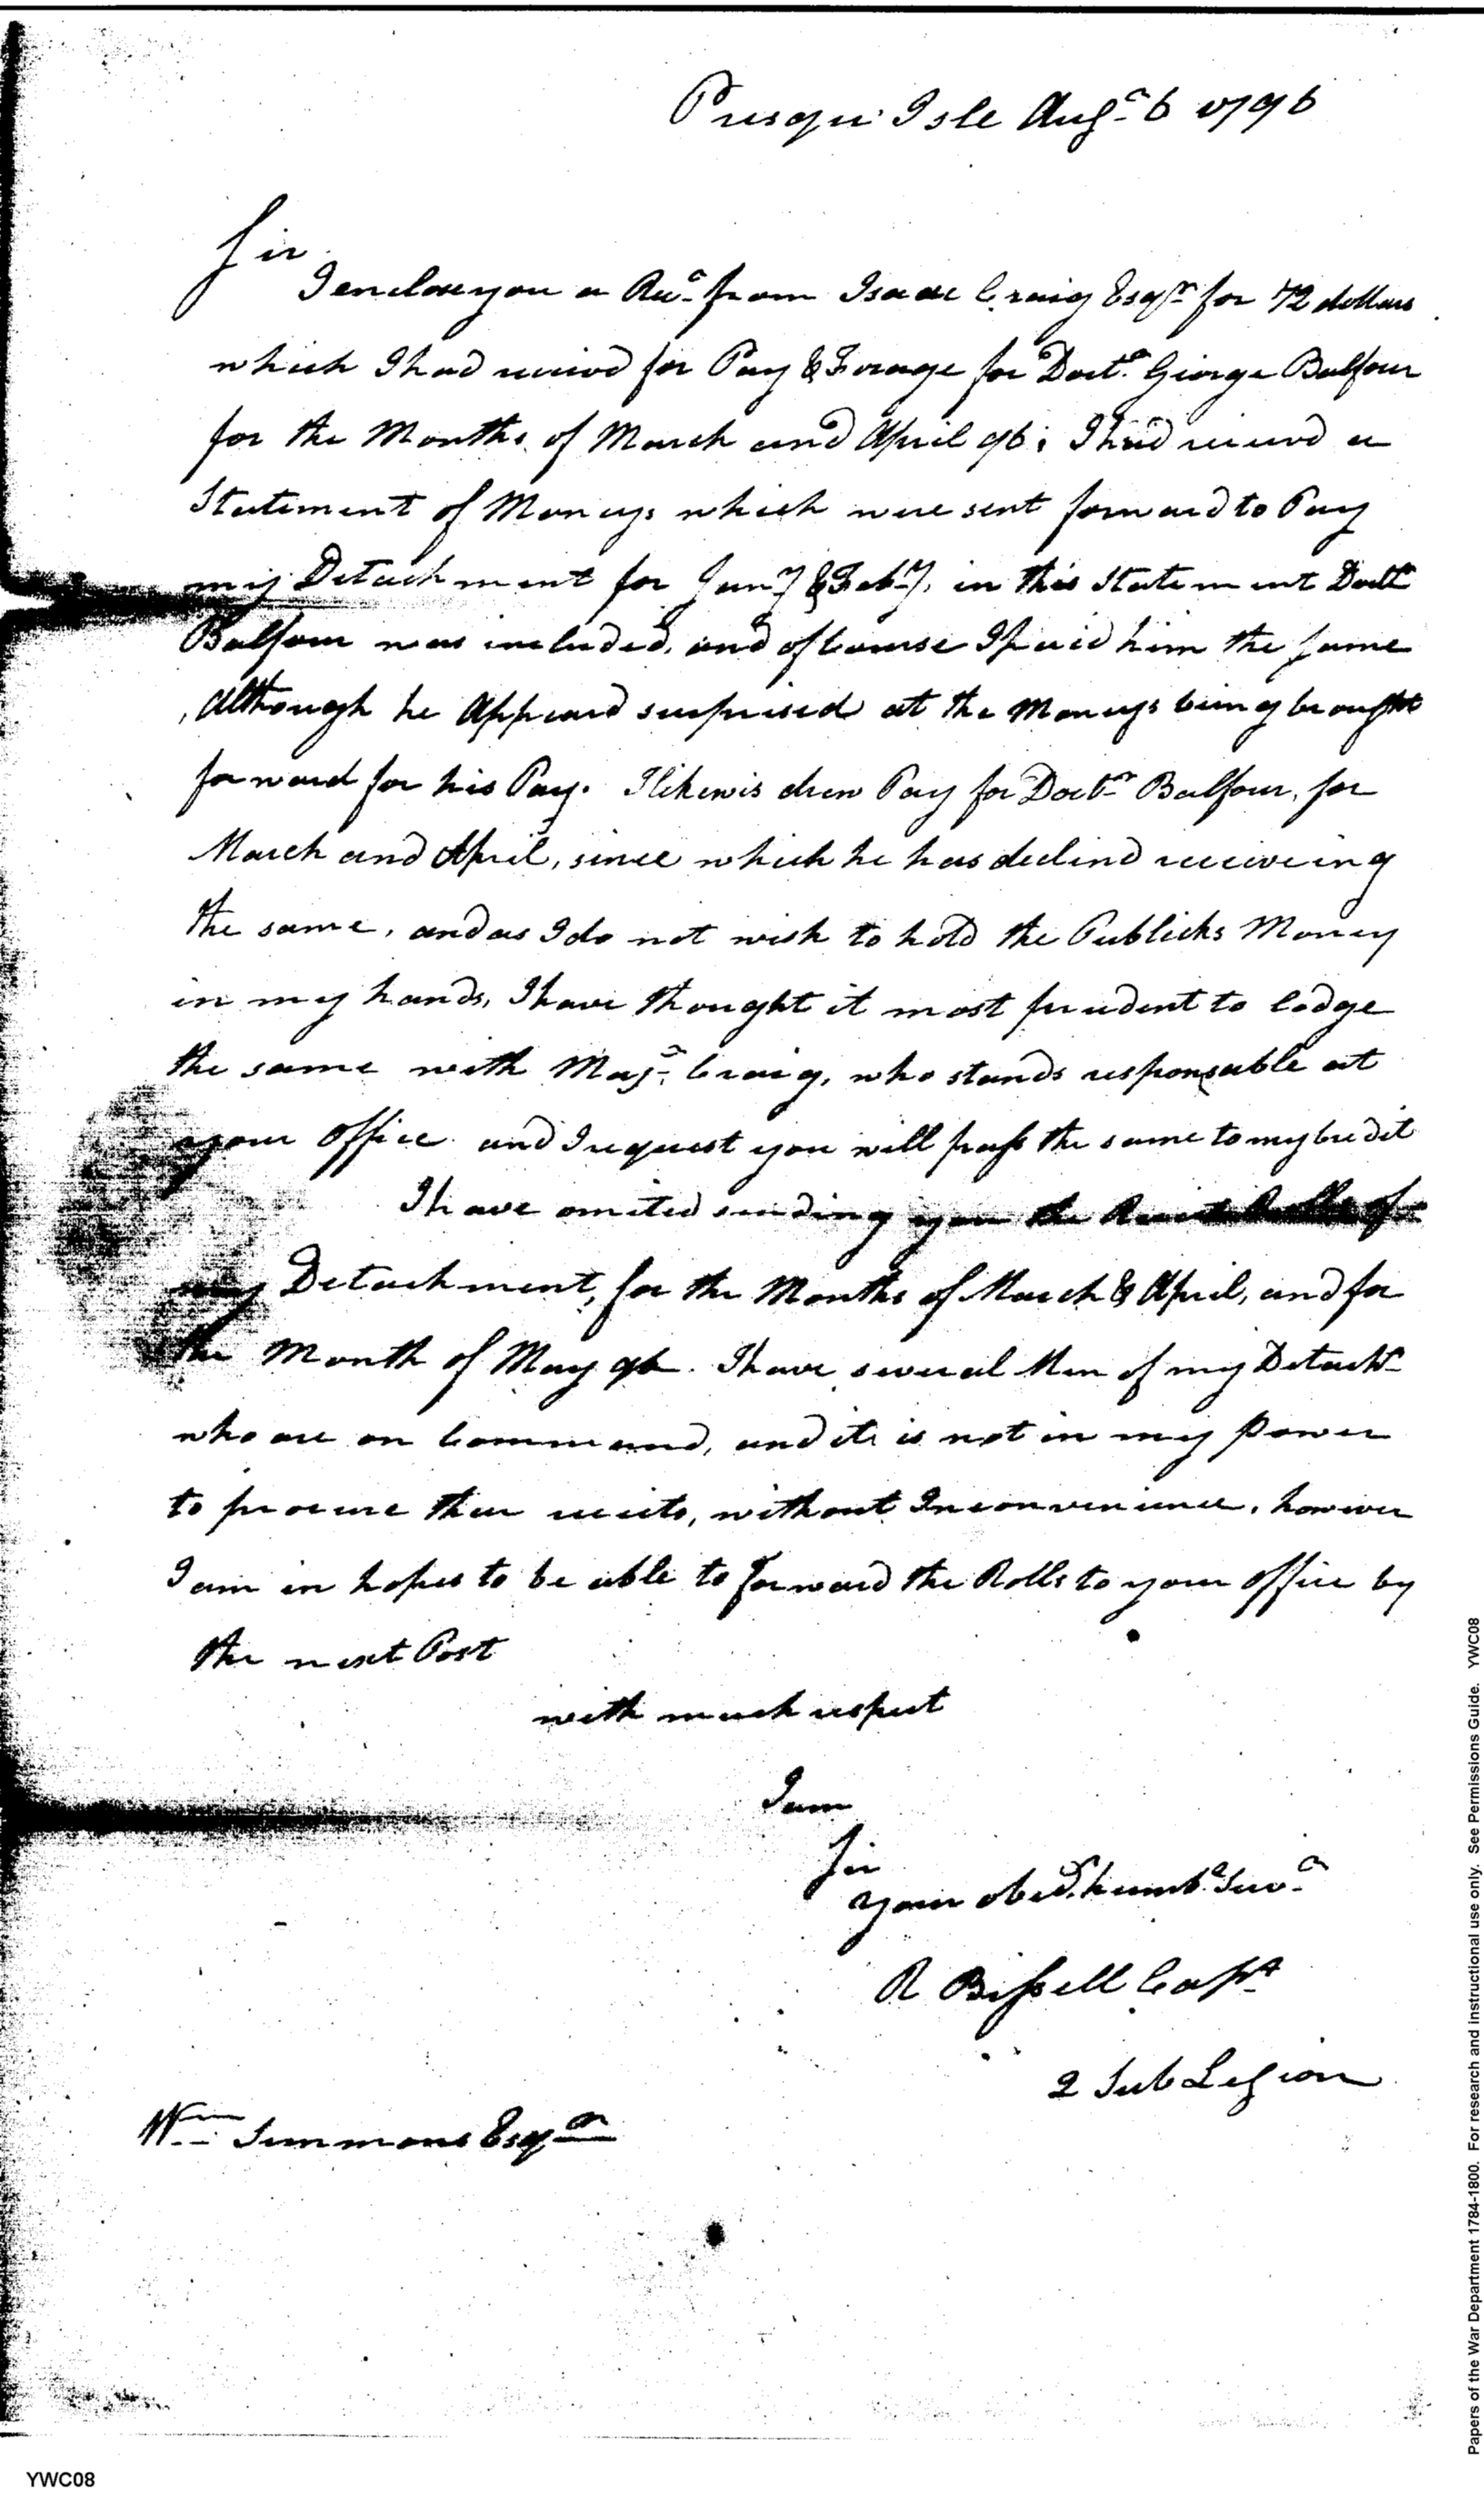 Presqu' Isle Augt 6 1796
Sir
I enclose you a Rect from Isaac Craig Esqr for 72 dollars
which I had receivd for Pay & Forage for Doctr George Balfour
for the Months of March and April 96; I had receivd a
Statement of Moneys which were sent forward to Pay
my Detachment for Jany & Feby, in this Statement Doctr
Balfour was included, and of Course I paid him the same
, Although he Appeard surprised at the Moneys being brought
forward for his Pay. I likewis drew Pay for Doctr Balfour, for
March and April, since which he has declind receiveing
the same, and as I do not wish to hold the Publicks Money
in my hands, I have thought it most prudent to lodge
the same with Majr Craig, who stands responsable at
your office and I request you will pass the same to my Credit
I have omited sending you the Receit Rolls of
my Detachment, for the Months of March & April, and for
the Month of May 96. I have several Men of my Detacht
who are on Command, and it is not in my Power
to procure their receits, without Inconvenience, however
I am in hopes to be able to forward the Rolls to your office by
the next Post
with much respect
I am
Sir
your obed. humbe Servt
R Bissell Capt
2 Sub Legion
Wm Simmons Esqr
Papers of the War Department 1784-1800. For research and instructional use only. See Permissions Guide. YWC08
YWC08